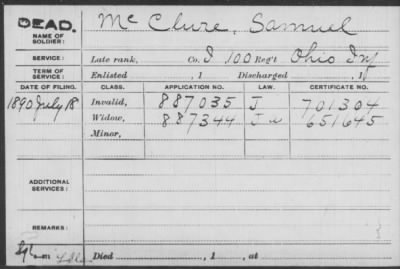 DEAD.
NAME OF SOLDIER: Mc Clure, Samuel
SERVICE: Late rank, Co. I 100 Reg't Ohio Inf
TERM OF SERVICE: Enlisted , 1 Discharged , 1
DATE OF FILING. CLASS. APPLICATION NO. LAW. CERTIFICATE NO.
1890 July 18 Invalid, 887035 J 701304
Widow, 887344 J w 651645
Minor,
ADDITIONAL SERVICES:
REMARKS:
Died , 1 , at